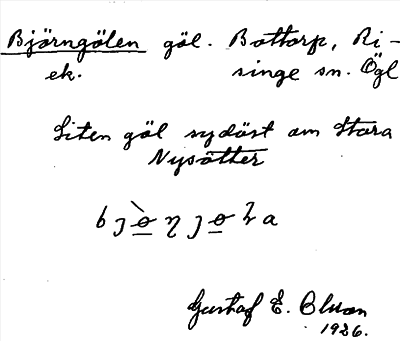 Björngölen göl. Bottorp, Ri-
ek. singe sn. Ögl
Liten göl sydöst om Stora
Nysätter
Gustaf E. Blman
1926.